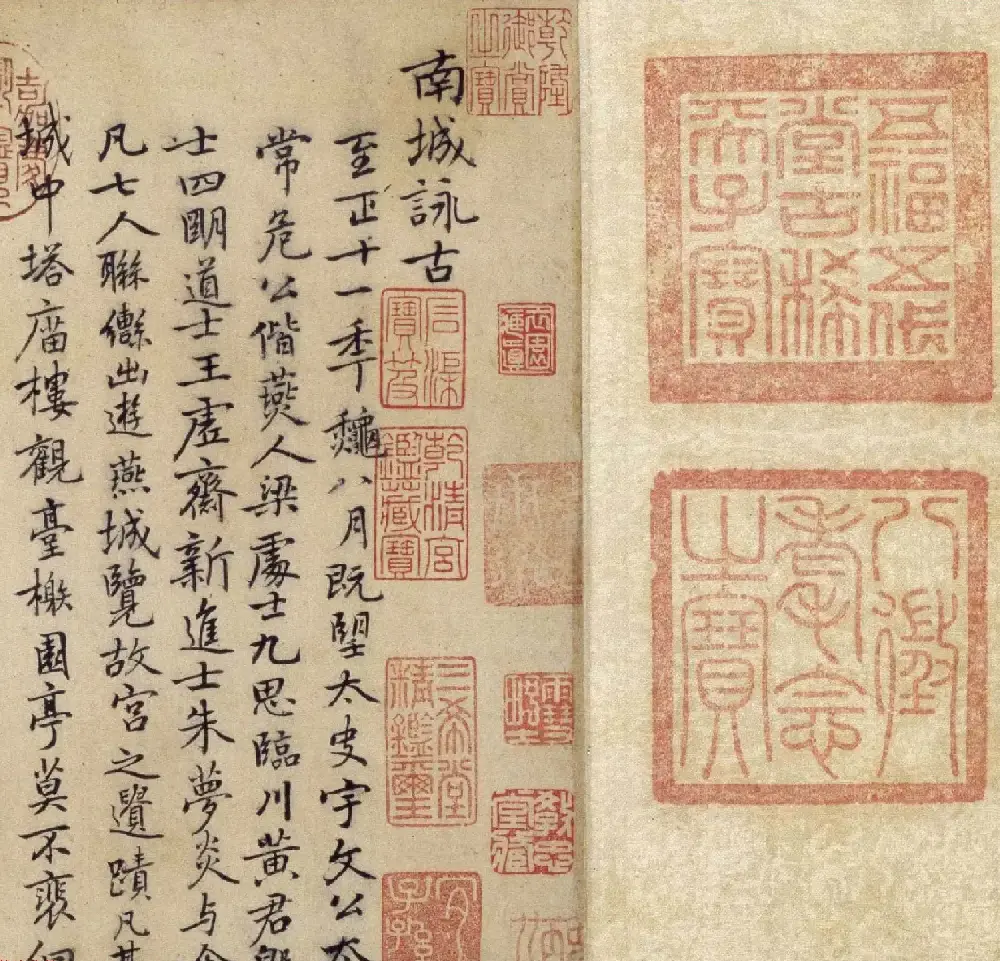 五福五代
堂古稀
天子寶
八徵
耄念
之寶
乾隆
御賞
之寶
南城詠古
至正十一季龝八月既朢太史宇文公太
常危公偕燕人梁處士九思臨川黄君殷
士四朙道士王虚齋新進士朱夢炎与余
凡七人聯轡出遊燕城覽故宮之遺蹟凡其
城中塔廟樓觀臺榭園亭莫不裵佪
乾清宮
鑑藏寶
三希堂
精鑑璽
宜
子孫
教忠
堂藏